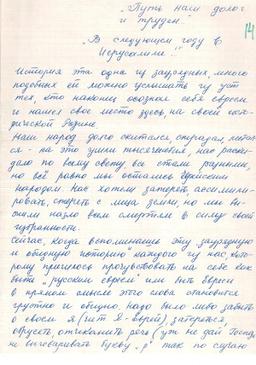 „Путь наш долог
и труден"
14
„В следующем году в
Иерусалиме!"
История эта одна из заурядных, много
подобных ей можно услышать из уст
тех, кто наконец осознал себя евреем
и нашел свое место здесь, на своей исто-
рической Родине.
Наш народ долго скитался, страдал,
ся - на это ушли тысячелетия, нас раски-
дало по всему свету, все стали разными,
но всё равно мы остались Еврейским
народом. Нас хотели затереть, ассимили-
ровать, стереть с лица земли, но мы вы-
жили назло всем смертям в силу своей
избранности.
Сейчас, когда вспоминаешь эту заурядную
и обыдную историю каждого из нас, кото-
рому пришлось прочувствовать на себе как
быть „русским евреем" или быть евреем
в прямом смысле этого слова становится
грустно и обидно. Надо было либо забыть
о своем я (чит. Я - еврей) затереться,
обрусеть, речь (уж не дай Господь
не выговаривать букву „р" так по случаю